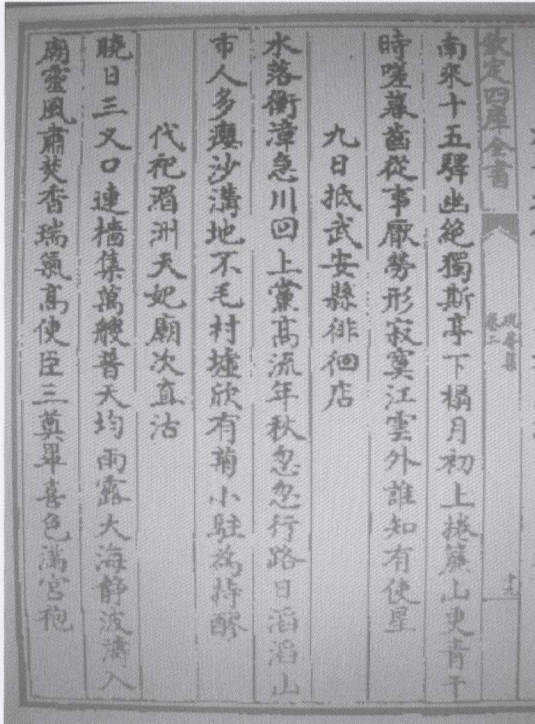 欽定四庫全書
蛻菴集
卷二
十九
南來十五驛幽絕獨斯亭下榻月初上捲簾山更青干
時嗟暮齒從事厭勞形寂寞江雲外誰知有使星
九日抵武安縣徘徊店
水落衡漳急川回上黨高流年秋忽忽行路日滔滔山
市人多癭沙溝地不毛村墟欣有菊小駐為持醪
代祀湄洲天妃廟次直沽
曉日三叉口連檣集萬艘普天均雨露大海靜波濤入
廟靈風肅焚香瑞氣高使臣三奠畢喜色滿宮袍